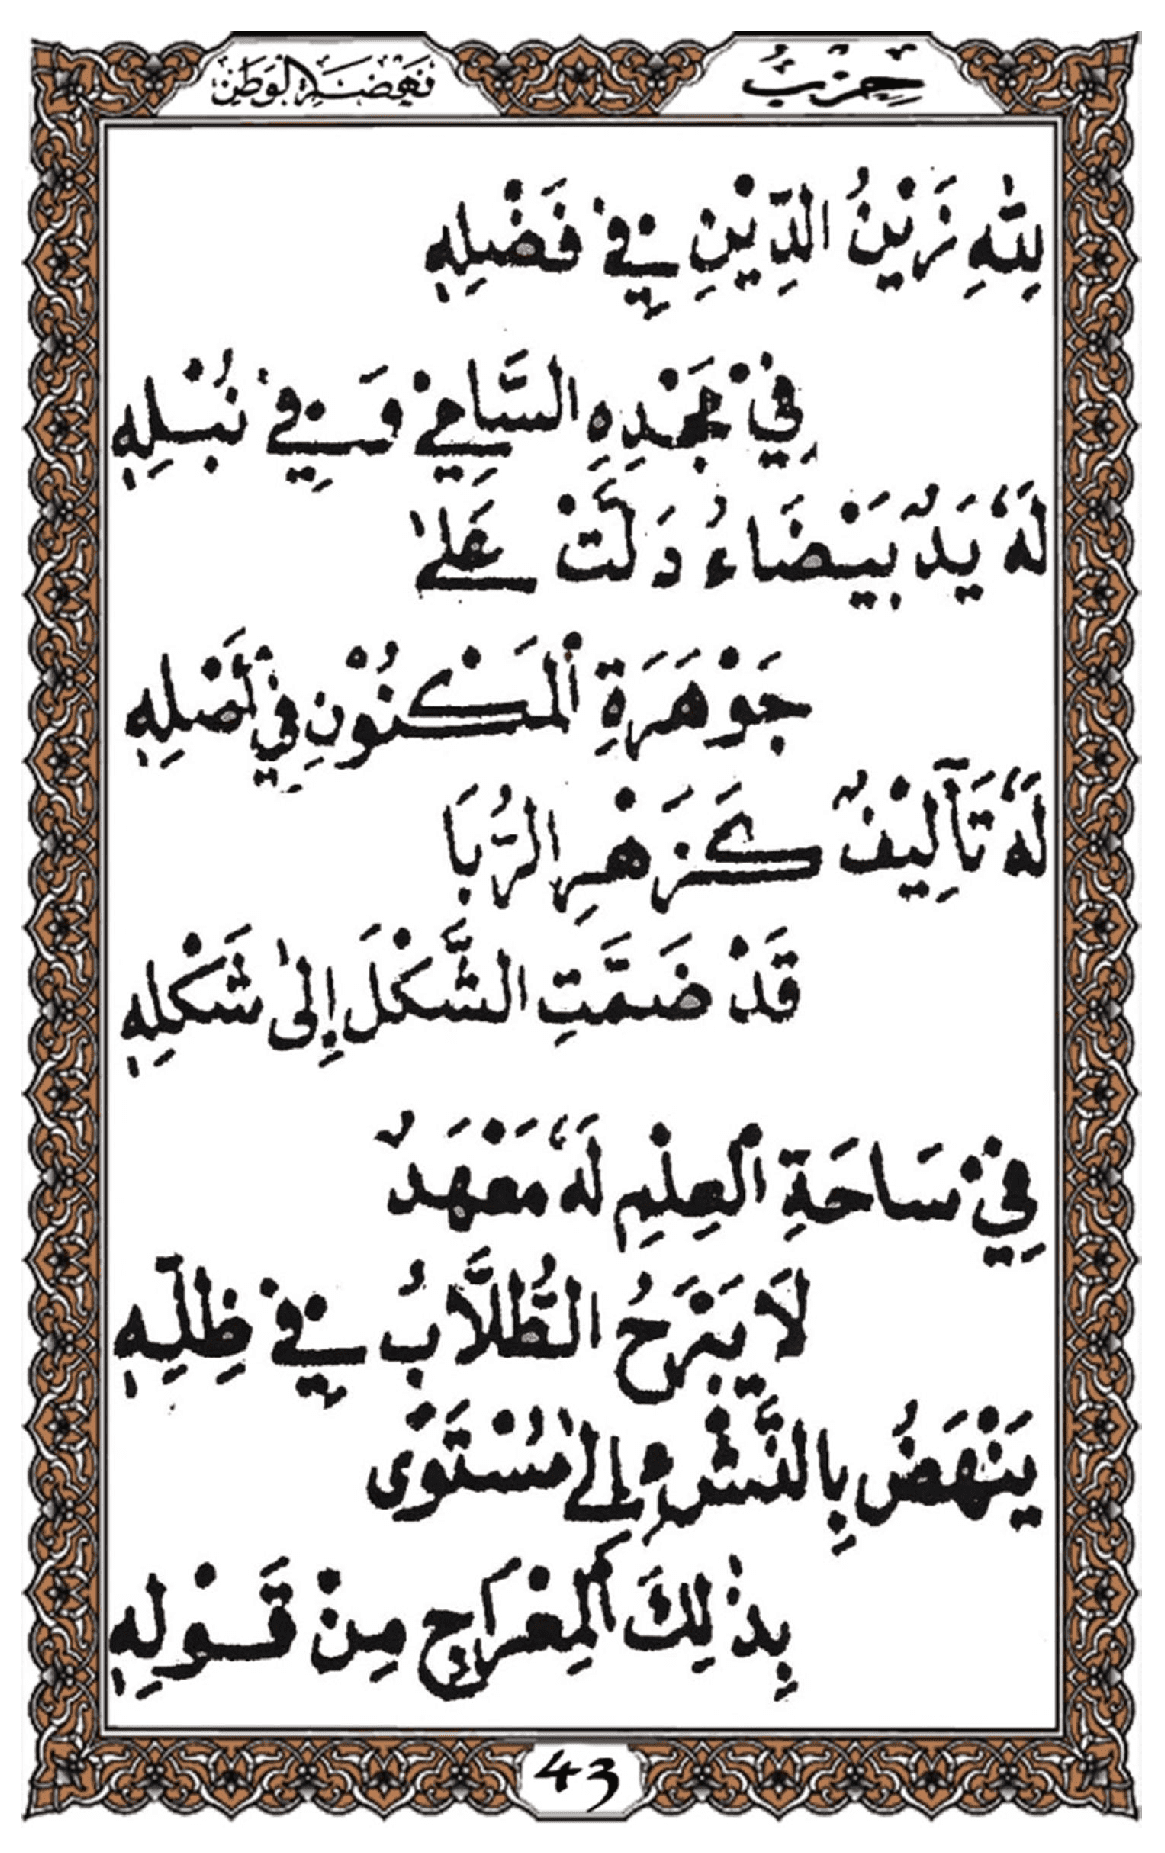 حِزْبُ
نَهْضَةِ الْوَطَنِ
لِلّٰهِ زَيْنُ الدِّيْنِ فِيْ فَضْلِهٖ
فِيْ مَجْدِهِ السَّامِيْ وَفِيْ نُبْلِهٖ
لَهٗ يَدٌ بَيْضَاءُ دَلَّتْ عَلىٰ
جَوْهَرَةِ الْمَكْنُوْنِ فِيْ أَصْلِهٖ
لَهٗ تَآلِيْفٌ كَزَهْرِ الرُّبَا
قَدْ ضَمَّتِ الشَّكْلَ إِلىٰ شَكْلِهٖ
فِيْ سَاحَةِ الْعِلْمِ لَهٗ مَعْهَدٌ
لَا يَبْرَحُ الطُّلَّابُ فِيْ ظِلِّهٖ
يَنْهَضُ بِالنَّشْءِ إِلىٰ مُسْتَوًى
بِذٰلِكَ الْمِعْرَاجِ مِنْ قَوْلِهٖ
43